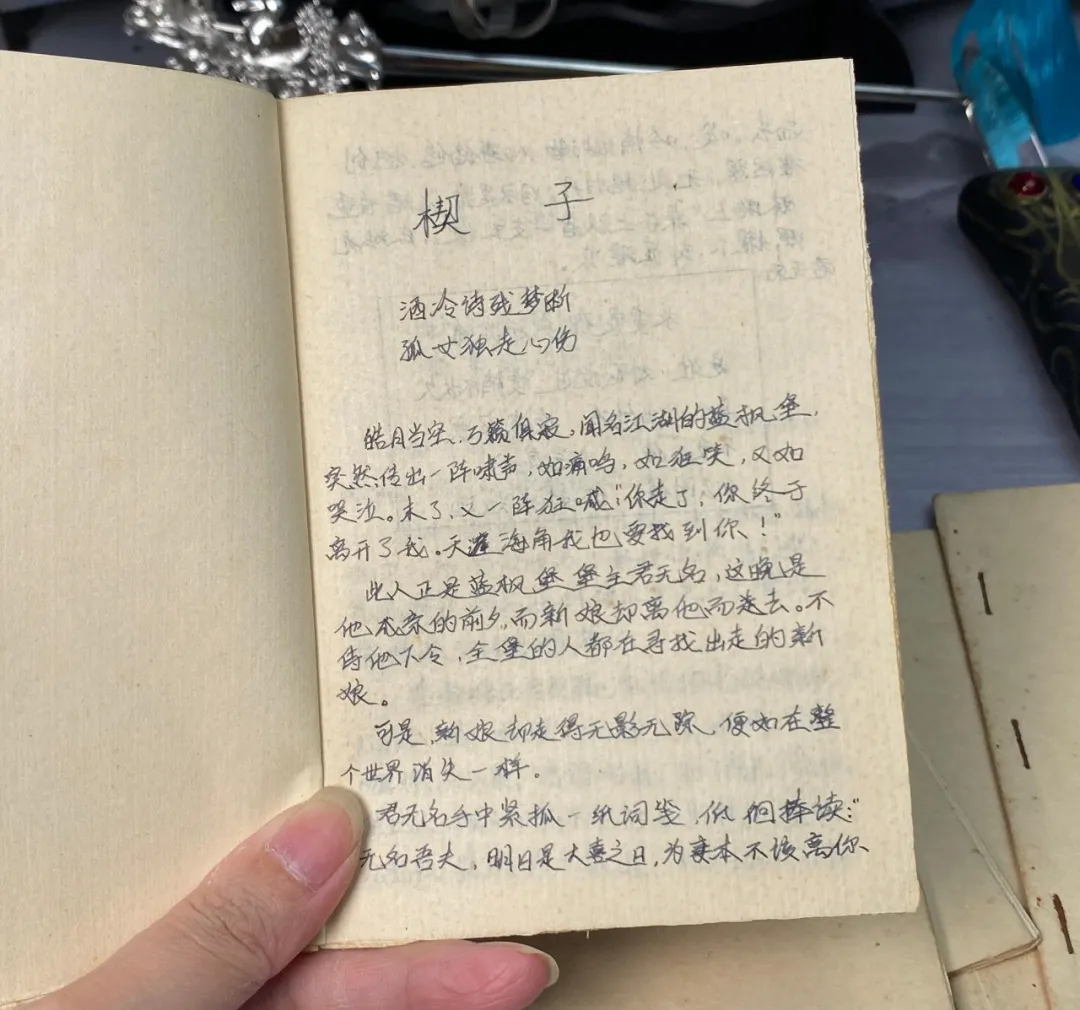 楔 子
酒冷诗残梦断
孤女独走心伤
皓月当空,万籁俱寂,闻名江湖的蓝枫堡,
突然传出一阵啸声,如痛呜,如狂笑,又如
哭泣。末了,又一阵狂喊:"你走了!你终于
离开了我。天涯海角我也要找到你!"
此人正是蓝枫堡堡主君无名,这晚是
他成亲的前夕,而新娘却离他而去。不
待他下令,全堡的人都在寻找出走的新
娘。
可是,新娘却走得无影无踪,便如在整
个世界消失一样。
君无名手中紧抓一纸词笺,低徊捧读:"
无名吾夫,明日是大喜之日,为妻本不该离你